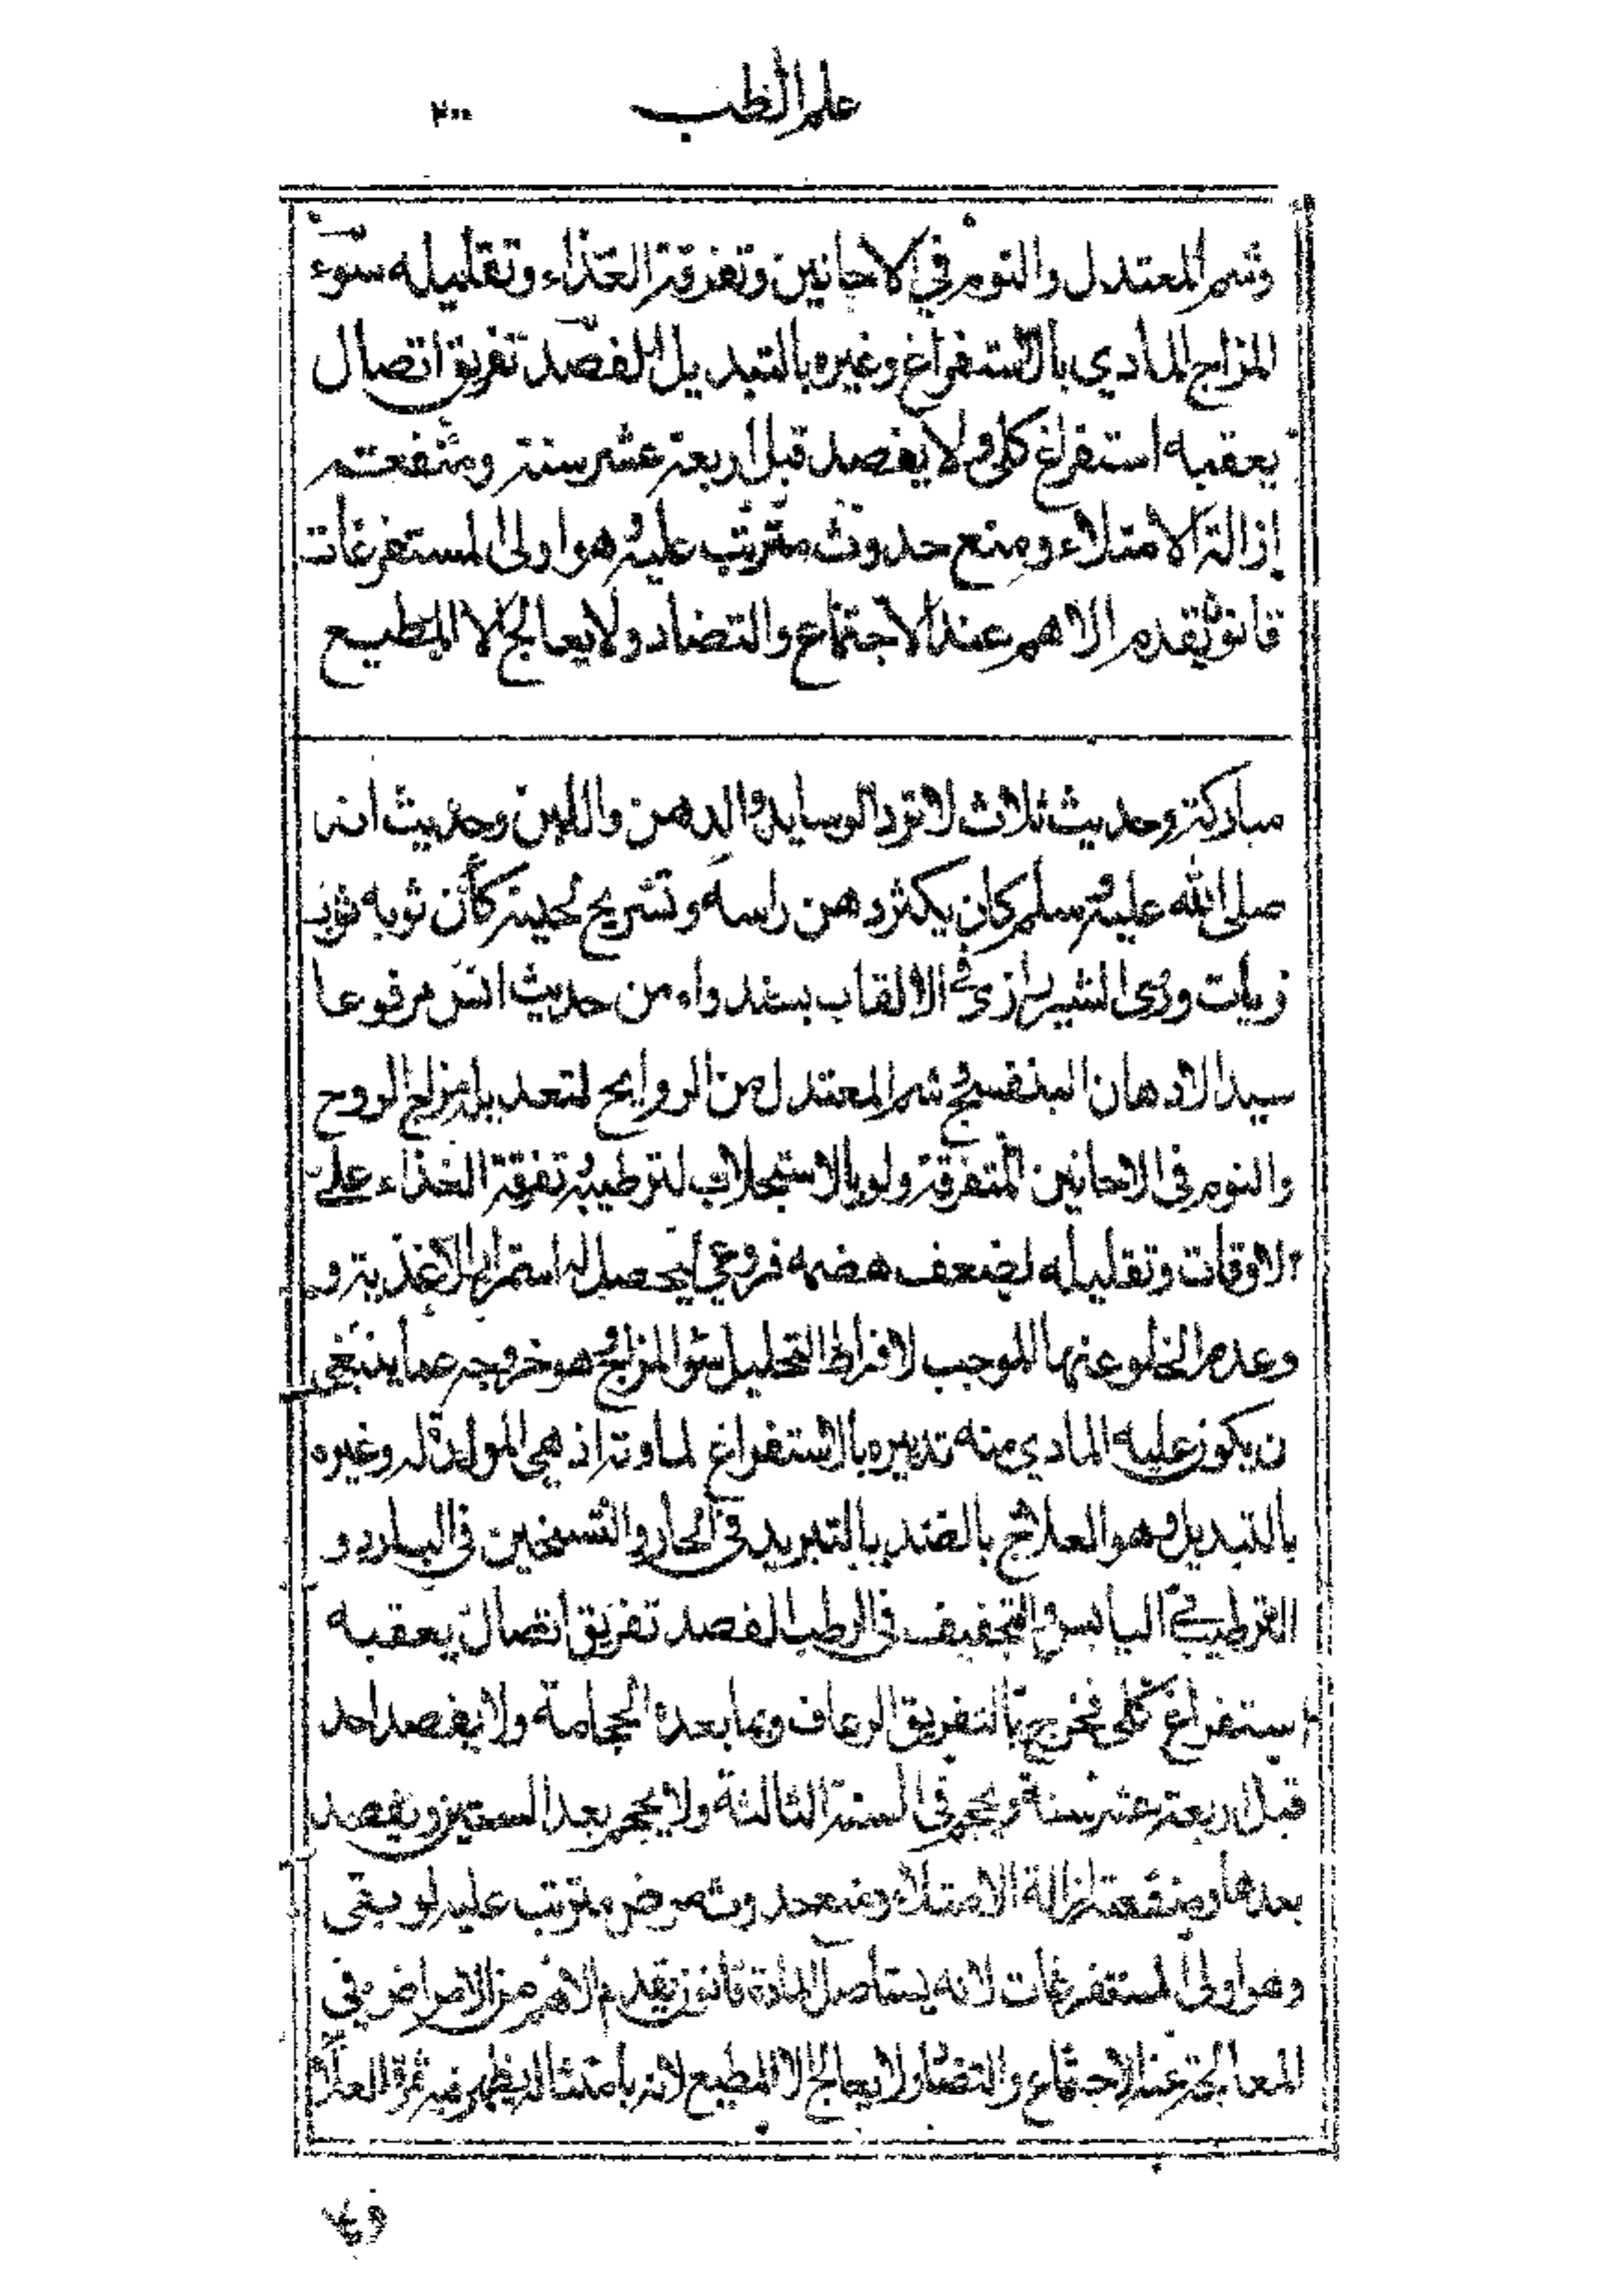 علم الطب ٢٠٠
وشم المعتدل والنوم في الاحانين وتفرقة الغذاء وتقليله سوء
المزاج المادي بالاستفراغ وغيره بالتبديل الفصد تفريق اتصال
يعقبه استفراغ كلي ولا يفصد قبل اربعة عشر سنة ومنفعته
إزالة الامتلاء ومنع حدوث مترتب عليه وهو اولى المستفرغات
قانون يقدم الاهم عند الاجتماع والتضاد ولا يعالج الا المطيع
مباركة وحديث ثلاث لا ترد الوسايد والدهن واللبن وحديث انه
صلى الله عليه وسلم كان يكثر دهن راسه وتسريح لحيته كأن ثوبه ثوب
زيات وروى الشيرازي في الالقاب بسند واه من حديث انس مرفوعا
سيد الادهان البنفسج وشم المعتدل من الروايح لتعديل مزاج الروح
والنوم في الاحانين المتفرقة ولو بالاستجلاب لترطيبه وتفرقة الغذاء على
الاوقات وتقليله لضعف هضمه فروعي ليحصل له استمرار الاغذية و
وعدم الخلو عنها الموجب لافراط التحليل سوء المزاج وهو خروجه عما ينبغي
ن يكون عليه المادي منه تدبيره بالاستفراغ لمادته اذ هي المولدة له وغيره
بالتبديل وهو العلاج بالضد بالتبريد في الحار والتسخين في البارد و
الترطيب في اليابس والتجفيف في الرطب الفصد تفريق اتصال يعقبه
استفراغ كلي فخرج بالتفريق الرعاف وبما بعده الحجامة ولا يفصد احد
قبل اربعة عشر سنة ويحجم في السنة الثالثة ولا يحجم بعد الستين ويفصد
بعدها ومنفعته ازالة الامتلاء ومنع حدوث مرض مترتب عليه لو بقي
وهو اولى المستفرغات لانه يستاصل المادة قانون يقدم الاهم من الامراض في
المعالجة عند الاجتماع والتضاد ولا يعالج الا المطيع لانه بامتثاله يظهر فيه ثمرة العلا